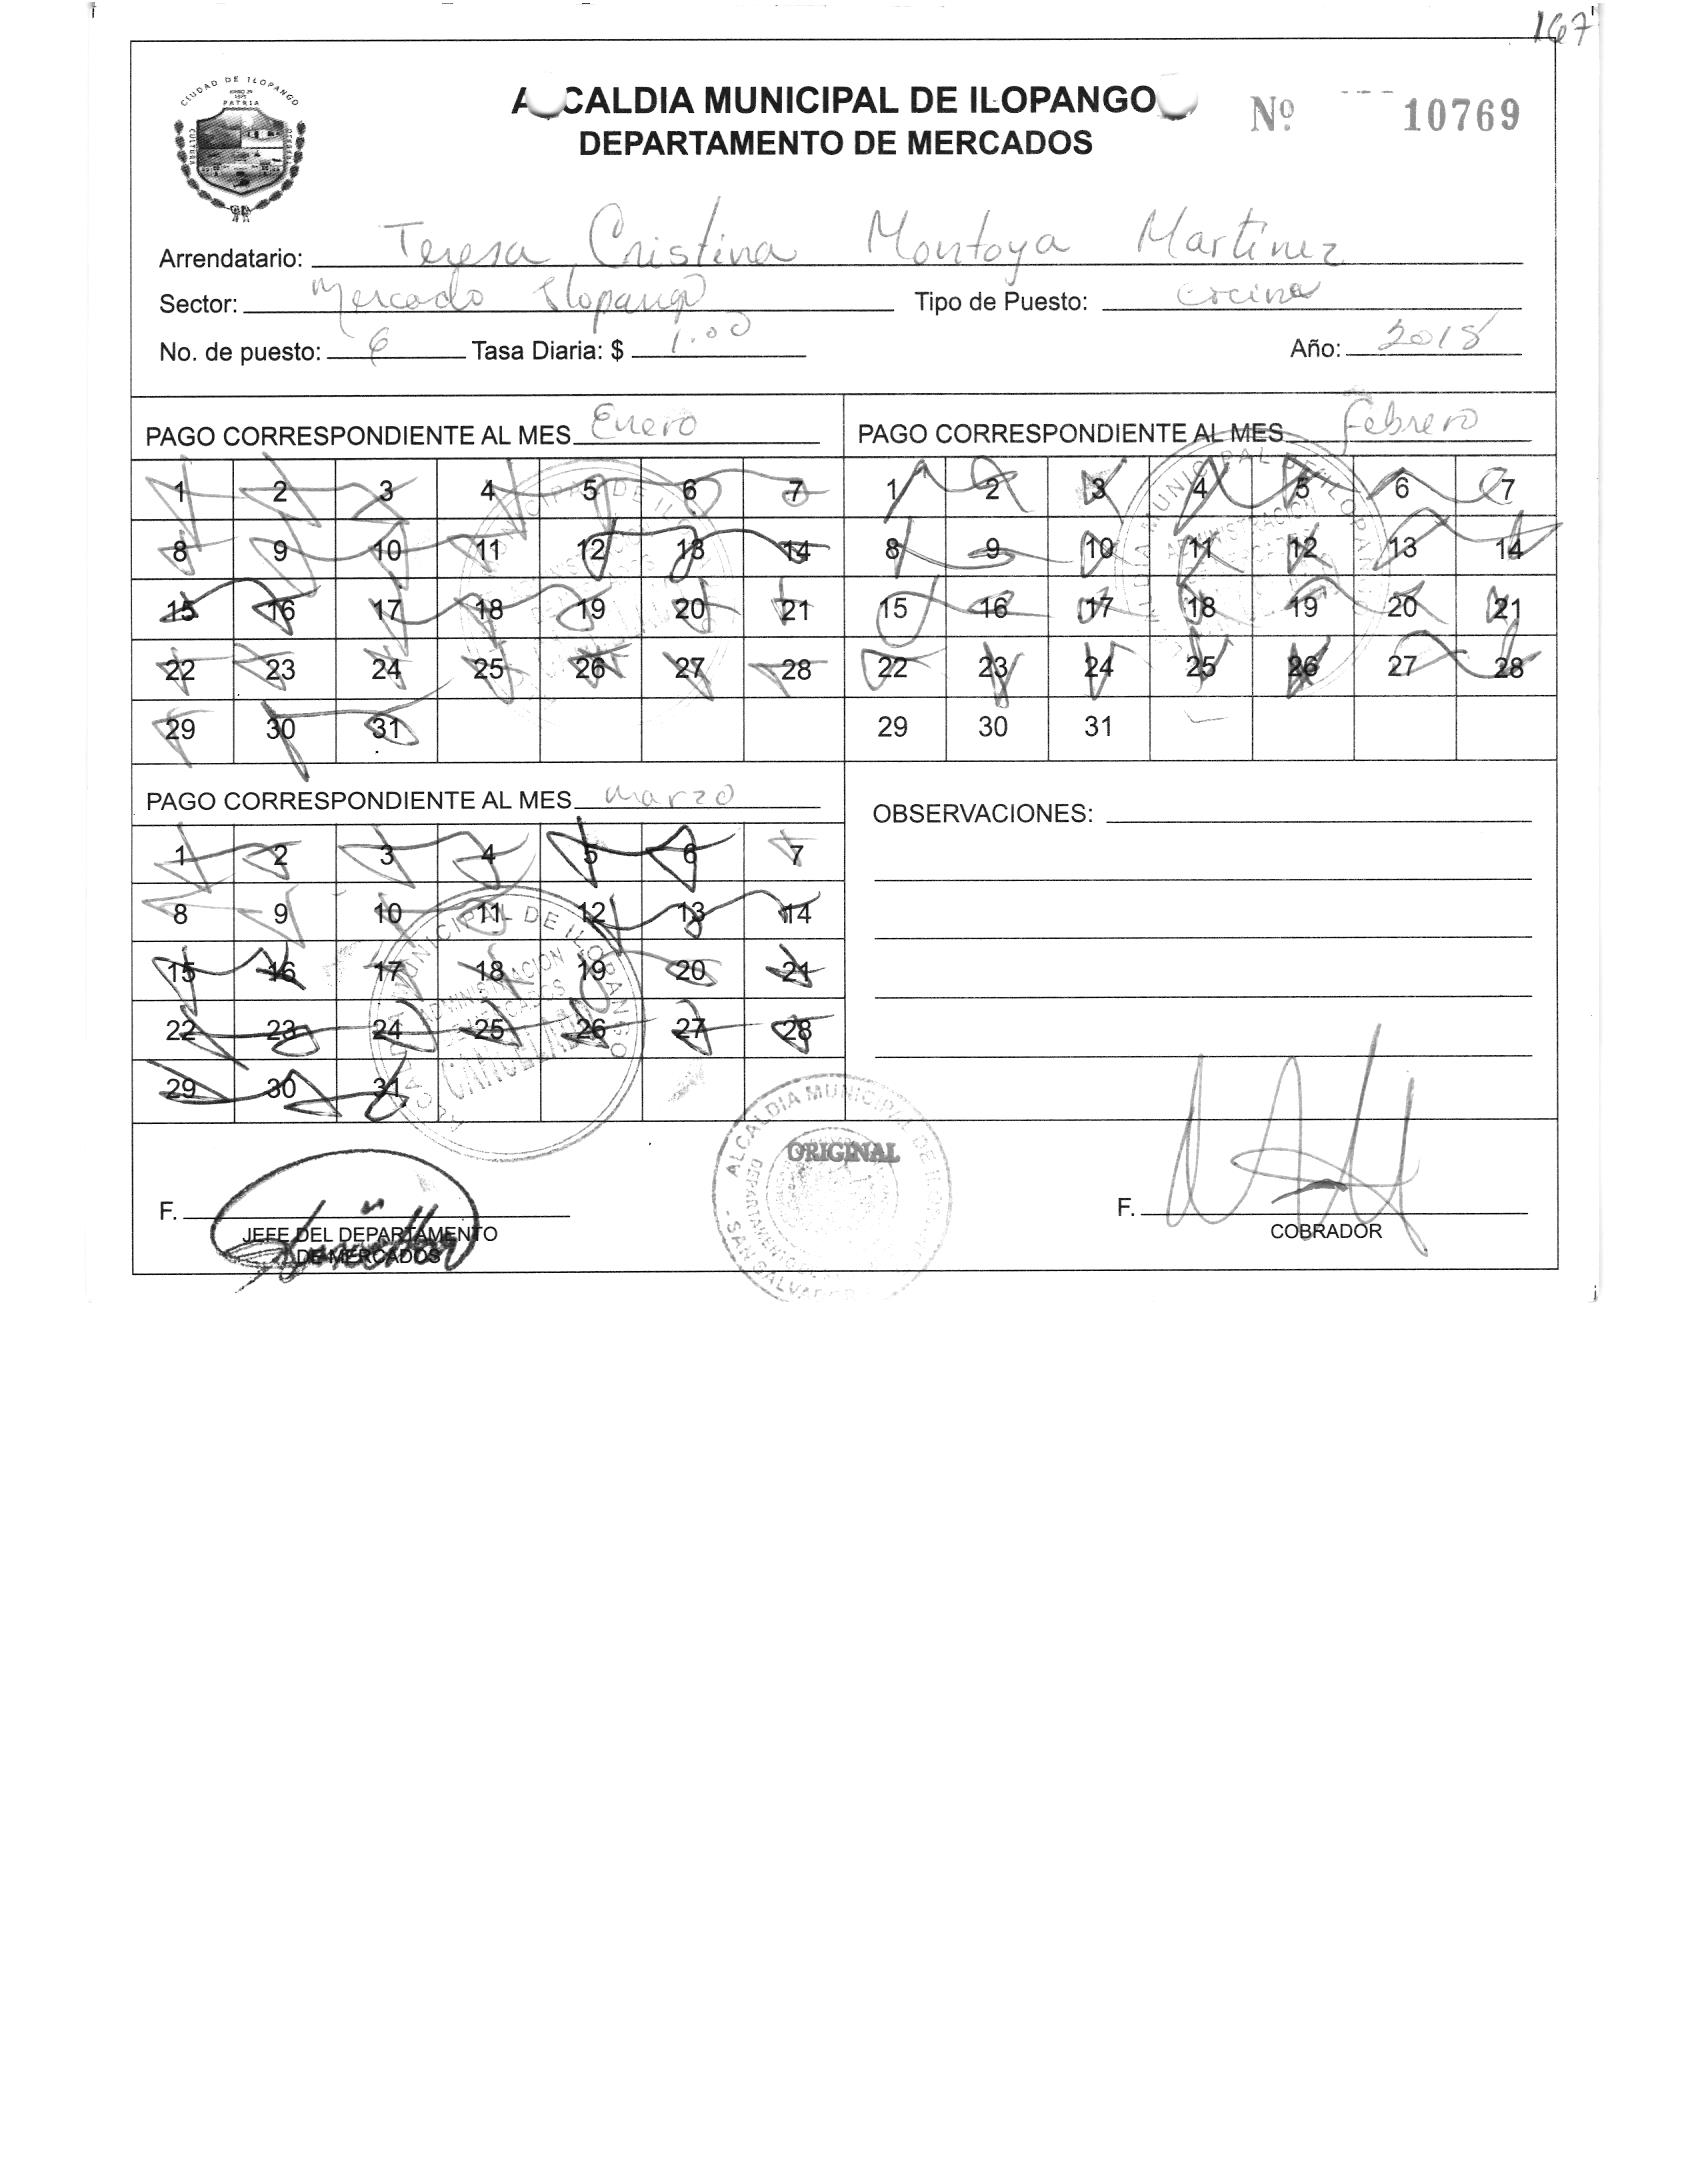 167
CIUDAD DE ILOPANGO
PATRIA
CULTURA
ALCALDIA MUNICIPAL DE ILOPANGO
DEPARTAMENTO DE MERCADOS
Nº 10769
Arrendatario: Teresa Cristina Montoya Martinez
Sector: Mercado Ilopango Tipo de Puesto: cocina
No. de puesto: 6 Tasa Diaria: $ 1.00 Año: 2018
PAGO CORRESPONDIENTE AL MES Enero
1 2 3 4 5 6 7
8 9 10 11 12 13 14
15 16 17 18 19 20 21
22 23 24 25 26 27 28
29 30 31
PAGO CORRESPONDIENTE AL MES Febrero
1 2 3 4 5 6 7
8 9 10 11 12 13 14
15 16 17 18 19 20 21
22 23 24 25 26 27 28
29 30 31
PAGO CORRESPONDIENTE AL MES Marzo
1 2 3 4 5 6 7
8 9 10 11 12 13 14
15 16 17 18 19 20 21
22 23 24 25 26 27 28
29 30 31
MUNICIPAL DE ILOPANGO
ADMINISTRACION
CANCELADO
OBSERVACIONES:
ALCALDIA MUNICIPAL DE
ORIGINAL
SAN SALVADOR
F.
JEFE DEL DEPARTAMENTO
DE MERCADOS
F.
COBRADOR